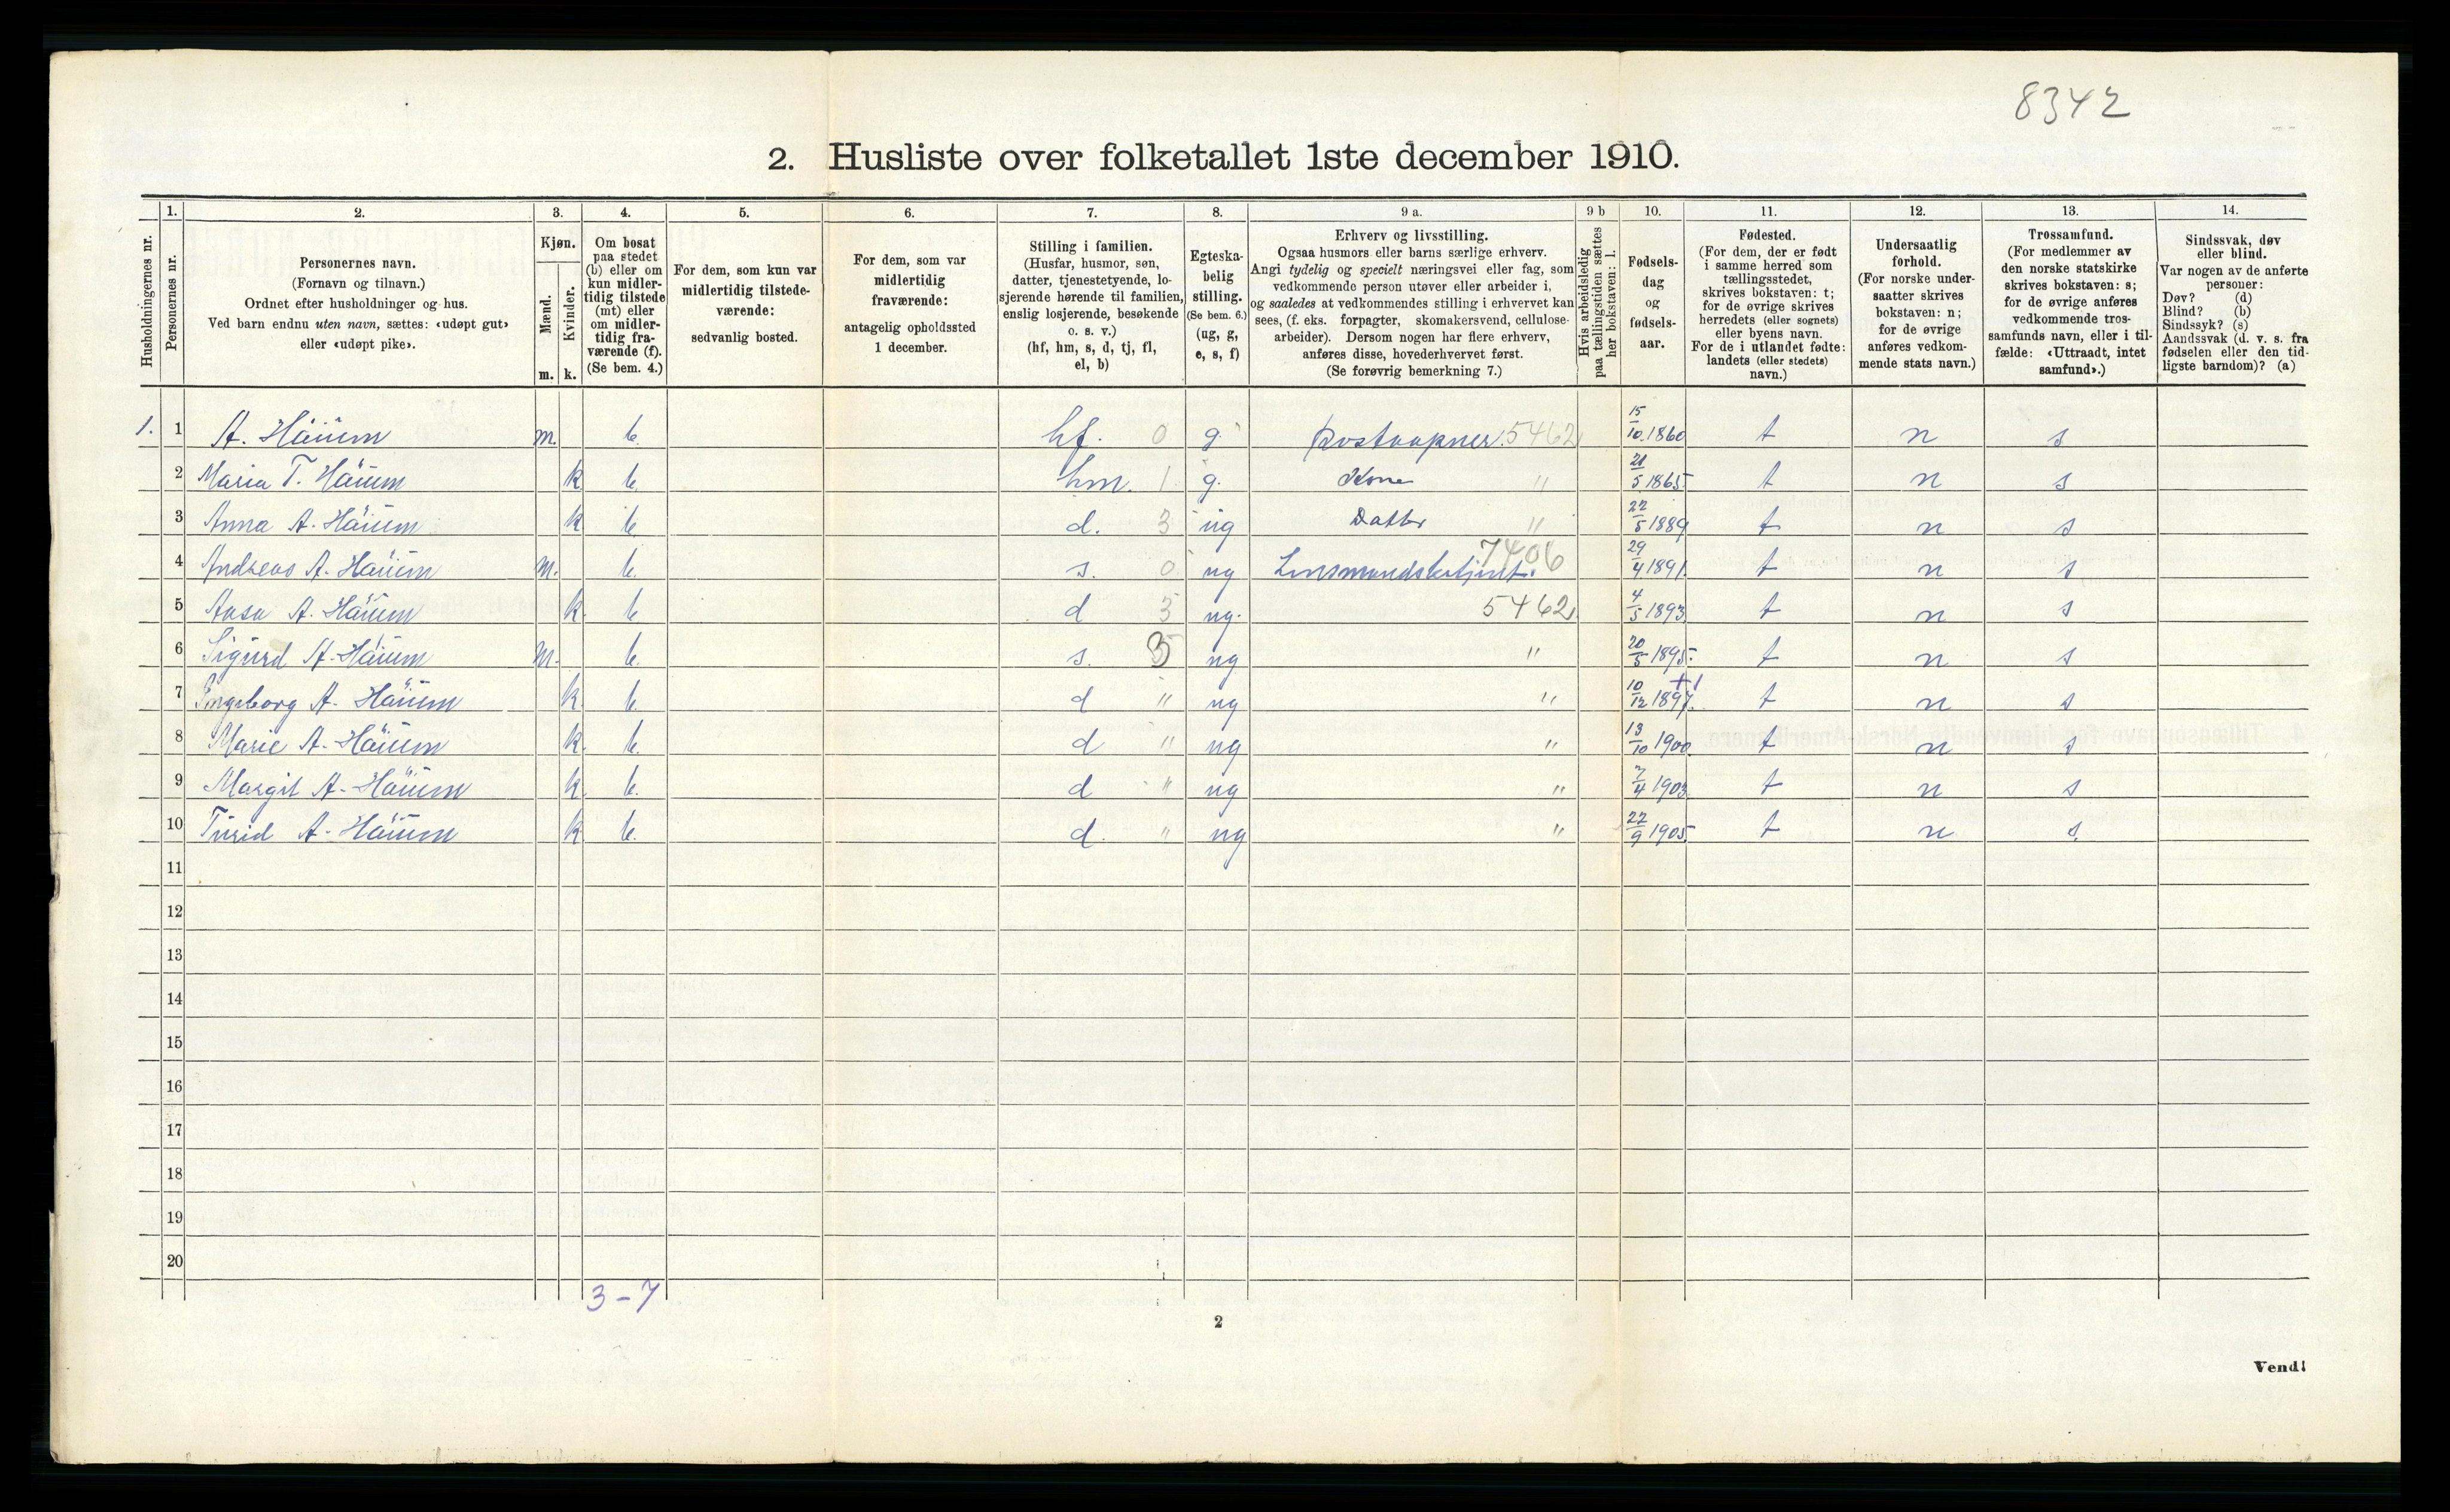 8342
2. Husliste over folketallet 1ste december 1910.
Husholdningernes nr.
1.
Personernes nr.
2.
Personernes navn.
(Fornavn og tilnavn.)
Ordnet efter husholdninger og hus.
Ved barn endnu uten navn, sættes: «udøpt gut»
eller «udøpt pike».
3.
Kjøn.
Mænd.
Kvinder.
m. k.
4.
Om bosat
paa stedet
(b) eller om
kun midler-
tidig tilstede
(mt) eller
om midler-
tidig fra-
værende (f).
(Se bem. 4.)
5.
For dem, som kun var
midlertidig tilstede-
værende:
sedvanlig bosted.
6.
For dem, som var
midlertidig
fraværende:
antagelig opholdssted
1 december.
7.
Stilling i familien.
(Husfar, husmor, søn,
datter, tjenestetyende, lo-
sjerende hørende til familien,
enslig losjerende, besøkende
o. s. v.)
(hf, hm, s, d, tj, fl,
el, b)
8.
Egteska-
belig
stilling.
(Se bem. 6.)
(ug, g,
e, s, f)
9 a.
Erhverv og livsstilling.
Ogsaa husmors eller barns særlige erhverv.
Angi tydelig og specielt næringsvei eller fag, som
vedkommende person utøver eller arbeider i,
og saaledes at vedkommendes stilling i erhvervet kan
sees, (f. eks. forpagter, skomakersvend, cellulose-
arbeider). Dersom nogen har flere erhverv,
anføres disse, hovederhvervet først.
(Se forøvrig bemerkning 7.)
9 b
Hvis arbeidsledig
paa tællingstiden sættes
her bokstaven: l.
10.
Fødsels-
dag
og
fødsels-
aar.
11.
Fødested.
(For dem, der er født
i samme herred som
tællingsstedet,
skrives bokstaven: t;
for de øvrige skrives
herredets (eller sognets)
eller byens navn.
For de i utlandet fødte:
landets (eller stedets)
navn.)
12.
Undersaatlig
forhold.
(For norske under-
saatter skrives
bokstaven: n;
for de øvrige
anføres vedkom-
mende stats navn.)
13.
Trossamfund.
(For medlemmer av
den norske statskirke
skrives bokstaven: s;
for de øvrige anføres
vedkommende tros-
samfunds navn, eller i til-
fælde: «Uttraadt, intet
samfund».)
14.
Sindssvak, døv
eller blind.
Var nogen av de anførte
personer:
Døv? (d)
Blind? (b)
Sindssyk? (s)
Aandssvak (d. v. s. fra
fødselen eller den tid-
ligste barndom)? (a)
1. 1 A. Häuum m. b. hf. 0 g. postaapner. 5462 15/10 1860 t n s
2 Maria T. Häuum k b. hm. 1 g. Kone " 21/5 1865 t n s
3 Anna A. Häuum k b. d. 3 ug Datter " 22/5 1889 t n s
4 Andreas A. Häuum m. b. s. 0 ug Lensmandsbetjent. 7406 29/4 1891 t n s
5 Aasa A. Häuum k. b d 3 ug. 5462 4/5 1893 t n s
6 Sigurd A. Häuum m. b. s. 3 ug " 20/5 1895. t n s
7 Ingeborg A. Häuum k b. d " ug " 10/12 1897. t n s
8 Marie A. Häuum k. b. d " ug " 13/10 1900. t n s
9 Margit A. Häuum k b. d " ug " 7/4 1903 t n s
10 Turid A. Häuum k b. d. " ug " 22/9 1905. t n s.
11
12
13
14
15
16
17
18
19
20
3-7
2
Vend!